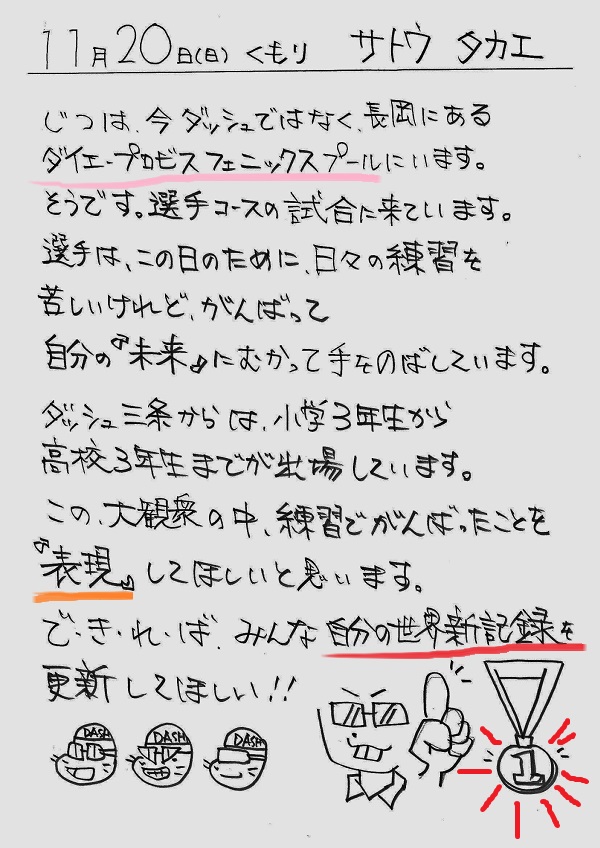 11月20日(日) くもり サトウ タカエ
じつは、今ダッシュではなく、長岡にある
ダイエープロビスフェニックスプールにいます。
そうです。選手コースの試合に来ています。
選手は、この日のために、日々の練習を
苦しいけれど、がんばって
自分の『未来』にむかって手をのばしています。
ダッシュ三条からは、小学3年生から
高校3年生までが出場しています。
この、大観衆の中、練習でがんばったことを
『表現』してほしいと思います。
で・き・れ・ば、みんな自分の世界新記録を
更新してほしい!!
DASH DASH DASH
1